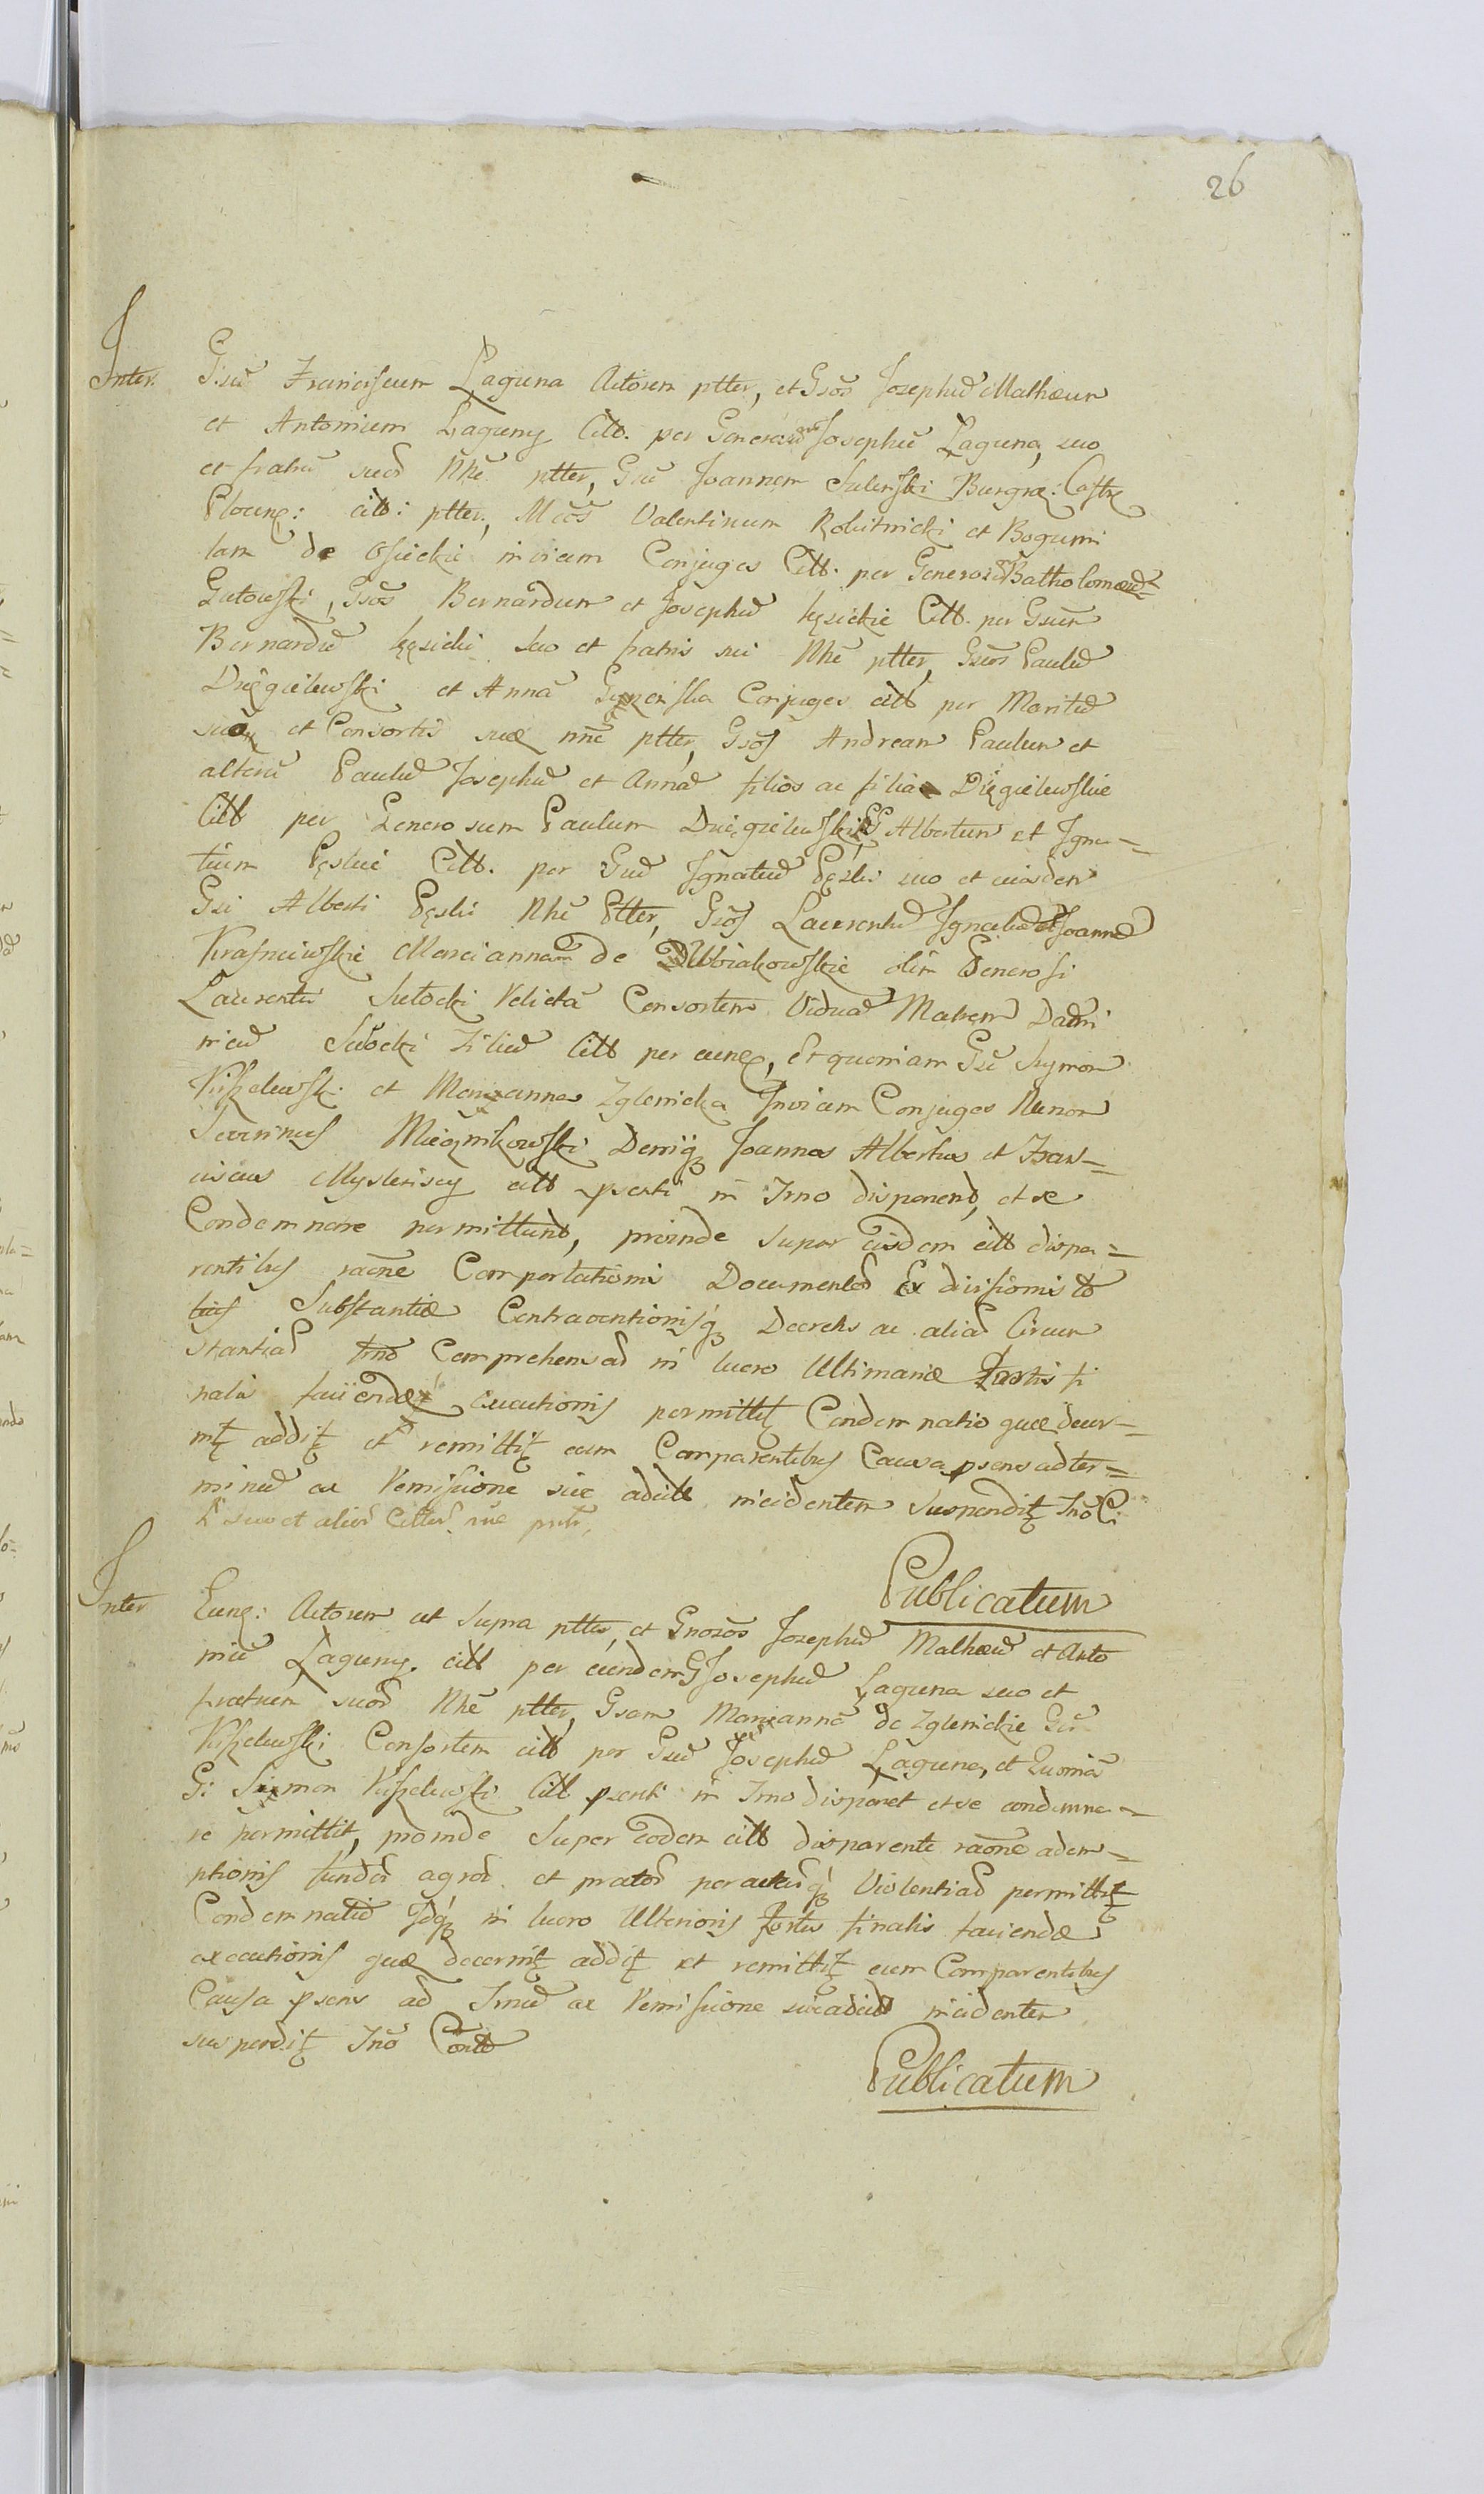 26
Inter. Gsū Franciscum Łaguna Actorem ptter, et Gsōs Josephū Mathæum
et Antonium Łaguny Citt. per Generosū Josephū Łaguna, suo
et fratrū suoꝝ Nñe ptter, Gsū Joannem Sulerski Burgræ: Castrꝫ
Plocenꝫ: citt: ptter, Mcos Valentinum Robitnicki et Bogumi
lam de Osieckie invicem Conjuges Citt. per Generosū Batholomæū
Gutowski, Gsōs Bernardum et Josephū Łęsickie Citt. per Gsum
Bernardū Łęsicki suo et fratris sui Nñe ptter, Gsōs Paulū
Dzięgielewski et Annā Conjuges citt per Maritū
suo et Consortis suæ nñe ptter, Gsos Andream Paulum et
alterū Paulū Josephū et Annā filios ac filia Dzięgielewskie
Citt per Generosum Paulum Dzięgielewski, G Albertum et Igna=
tium Pęskie Citt. per Gsū Ignatiū Pęski suo et eiusdem
Gsi Alberti Pęski Nñe Ptter, Gsos Laurentiū Ignatiū et Joannē
Krasniewskie Mariannam de Dłubiakowskie olim Generosi
Laurentii Sutocki Relictā Consortem Viduā Matrem Dami
nicū Sutocki Filiū Citt per eunꝫ, Et quoniam Gsi Szymon
Kisielewski et Marianna Zglenicka Invicem Conjuges Nenon
Severinus Mięznikowski Deniqꝫ Joannes Albertus et Fran=
ciscus Myslenscy citt psenti in Trno disparend, et se
Condemnare permittund, proinde super eisdem citt dispa=
rentibus raōne Comportationis Documentoꝝ Ex divisionis
Substantiæ Contraventionisqꝫ Decretis ac aliaꝝ Circum
stantiaꝝ Comprehensaꝝ in lucro Ultimariæ fi
nalis faciendæ executionis permittiꝫ Condemnatio quæ decer=
nitꝫ additꝫ et remittitꝫ cum Comparentibus Causa psens ad ter=
minū ex Remissione sive adcitt incidentem suspenditꝫ
suo et alior Cittor nñe
Publicatum
Inter Eunꝫ: Actorem ut supra ptter, et Gnosōs Josephū Mathæū et Anto
niū Łaguny. citt per eundem G Josephū Łaguna suo et
fratrum suoꝝ Nñe ptter, Gsam Mariannā de Zglenickie Gsi
Kisielewski Consortem citt per Gsū Josephū Łaguna, et Quoniā
G: Simon Kisielewski Citt psenti in Trno disparet et se condemna=
re permittit, proinde super eodem citt disparente raōne adem=
ptionis fundoꝝ agroꝝ et pratoꝝ peractarūqꝫ Violentiaꝝ permittitꝫ
Condemnatio Idqꝫ in lucro Ulterioris finalis faciendæ
executionis quæ decernitꝫ additꝫ et remittitꝫ cum Comparentibus
Causa psens ad Trnū ex Remissione sive adcitt incidenten
suspenditꝫ
Publicatum